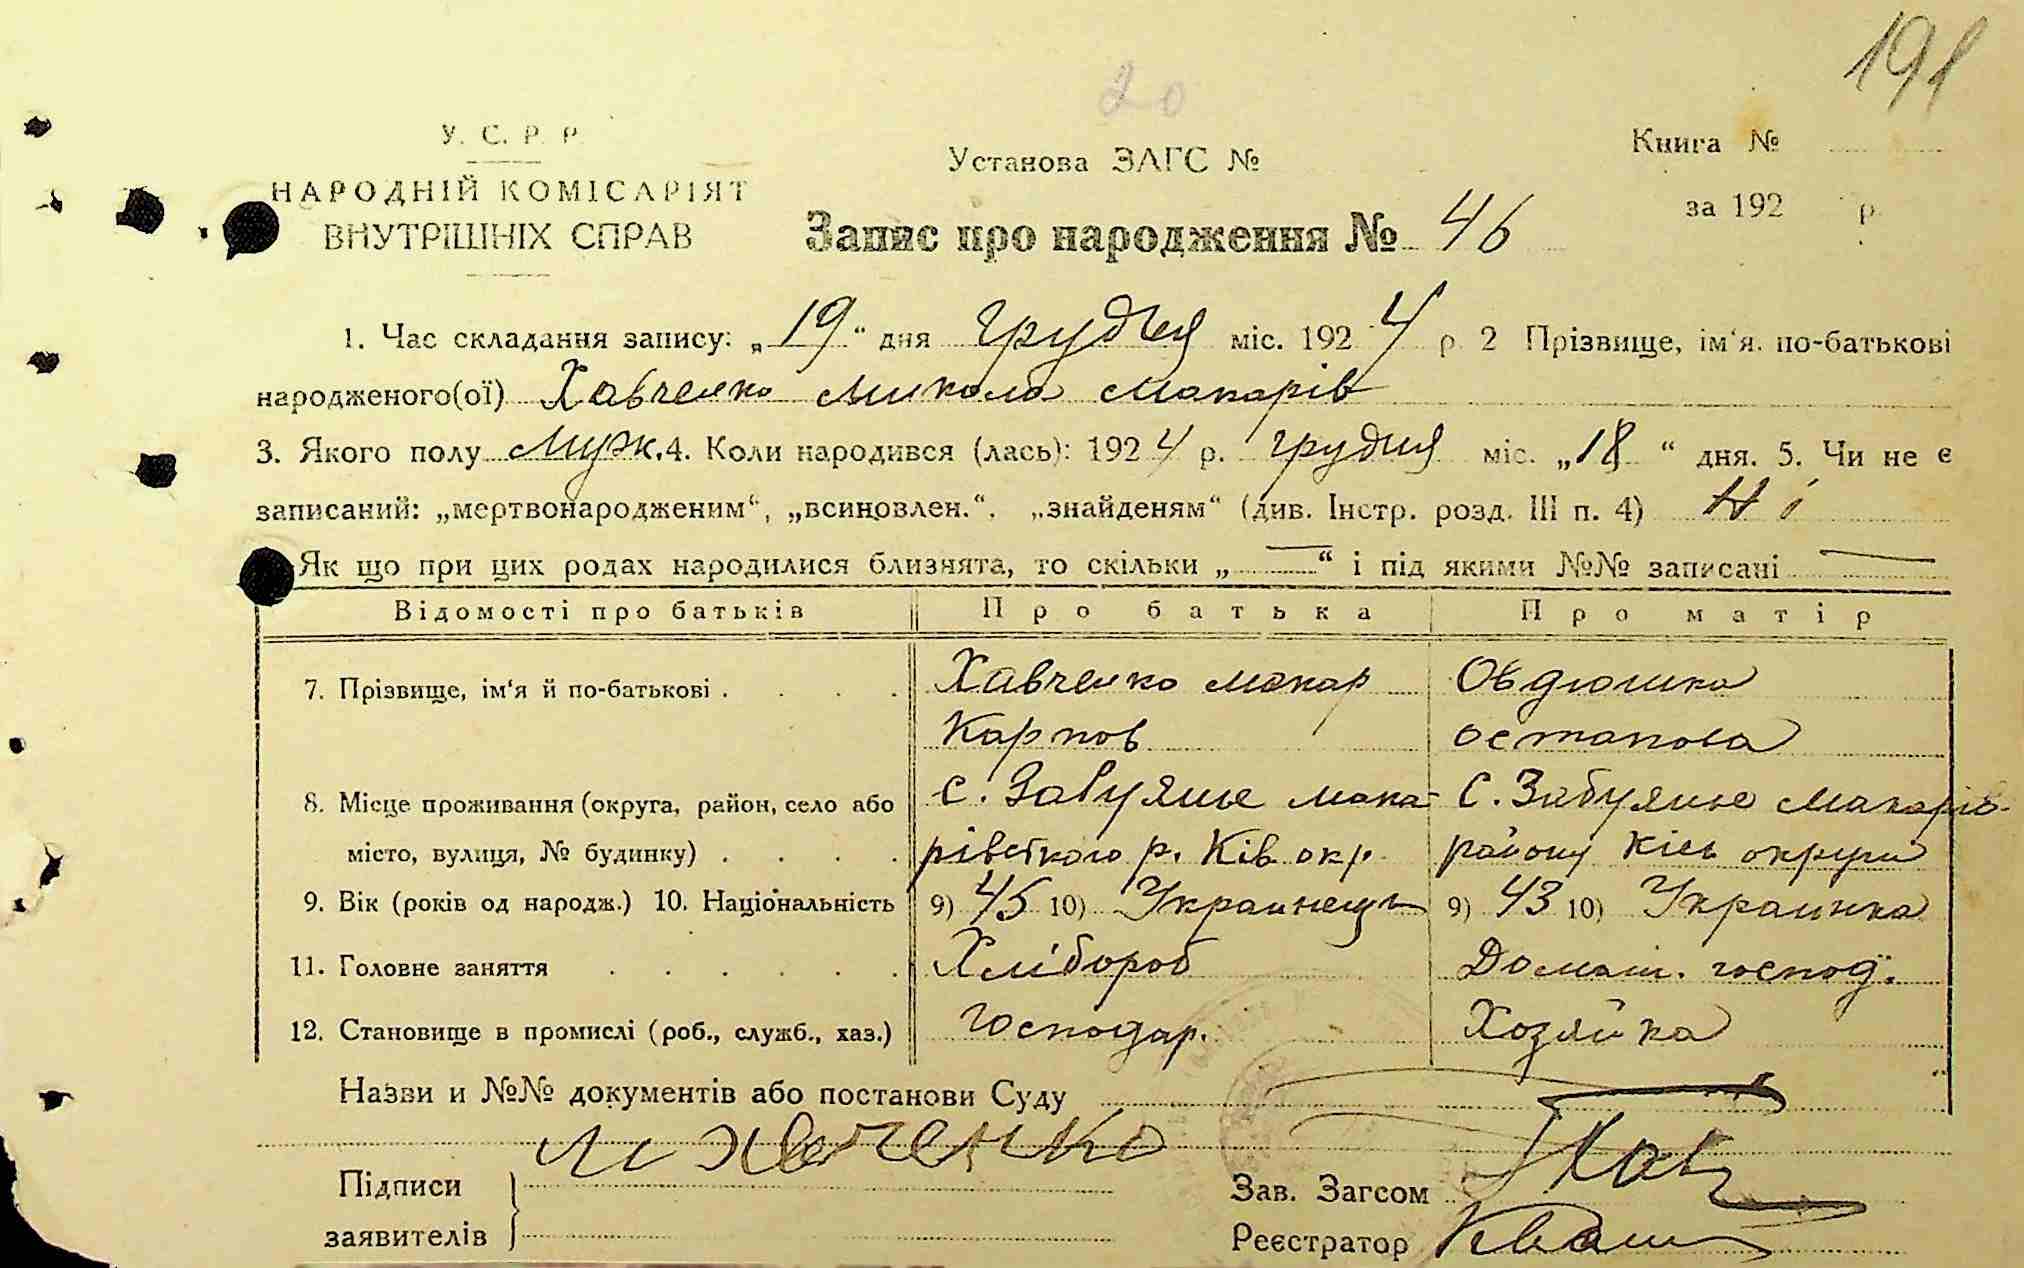 191
20
У. С. Р. Р.
НАРОДНІЙ КОМІСАРІЯТ
ВНУТРІШНІХ СПРАВ
Установа ЗАГС №
Книга №
за 192 р.
Запис про народження № 46
1. Час складання запису: „19“ дня грудня міс. 1924 р. 2 Прізвище, ім'я, по-батькові
народженого(ої) Хавченко Микола Макарів
3. Якого полу Муж. 4. Коли народився (лась): 1924 р. грудня міс. „18“ дня. 5. Чи не є
записаний: „мертвонародженим“, „всиновлен.“, „знайденям“ (див. Інстр. розд. III п. 4) Ні
Як що при цих родах народилися близнята, то скільки „—“ і під якими №№ записані —
Відомості про батьків Про батька Про матір
7. Прізвище, ім'я й по-батькові . . . . Хавченко Макар Овдюшка
Карпов Остапова
8. Місце проживання (округа, район, село або с. Забуянье Мака- С. Забуянье Макарів-
місто, вулиця, № будинку) . . . . рівського р. Ків окр. району Київ округи
9. Вік (років од народж.) 10. Національність 9) 45 10) Украинець 9) 43 10) Украинка
11. Головне заняття . . . . . . Хлібороб Домаш. господ.
12. Становище в промислі (роб., служб., хаз.) Господар. Хозяйка
Назви и №№ документів або постанови Суду
М Хавченко
Підписи
заявителів
Зав. Загсом
Реєстратор